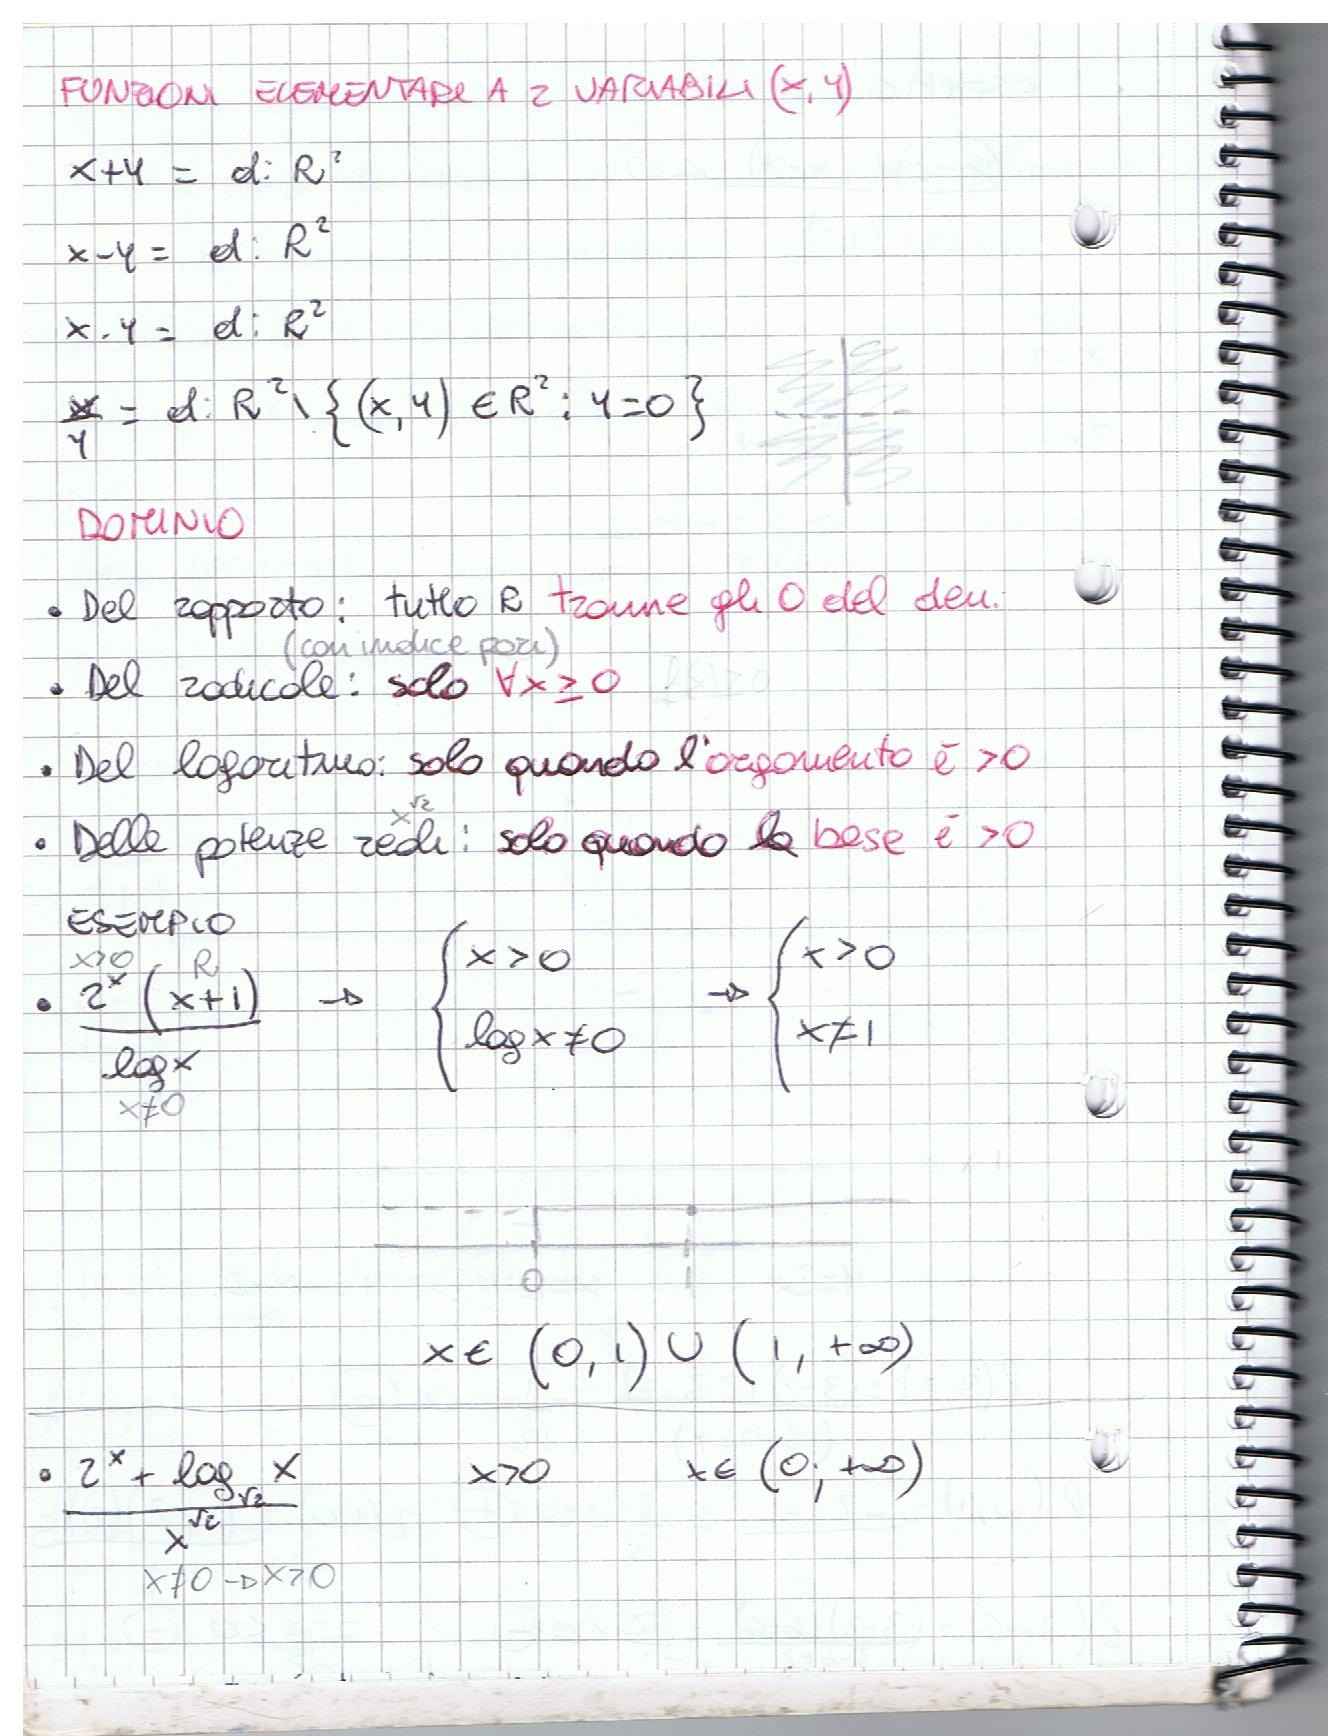 FUNZIONI ELEMENTARI A 2 VARIABILI (x, y)
x+y = d: R²
x-y = d: R²
x·y = d: R²
x/y = d: R² \ {(x,y) ∈ R² : y=0}
DOMINIO
• Del rapporto: tutto R tranne gli 0 del den.
(con indice pari)
• Del radicale: solo ∀x ≥ 0
• Del logaritmo: solo quando l'argomento è >0
x^√2
• Delle potenze reali: solo quando la base è >0
ESEMPIO
x>0 R
• 2^x (x+1) / log x → { x>0 log x ≠ 0 → { x>0 x≠1
x≠0
0
x ∈ (0,1) ∪ (1,+∞)
• 2^x + log_√2 x / x^√2 x>0 x ∈ (0; +∞)
x≠0 → x>0